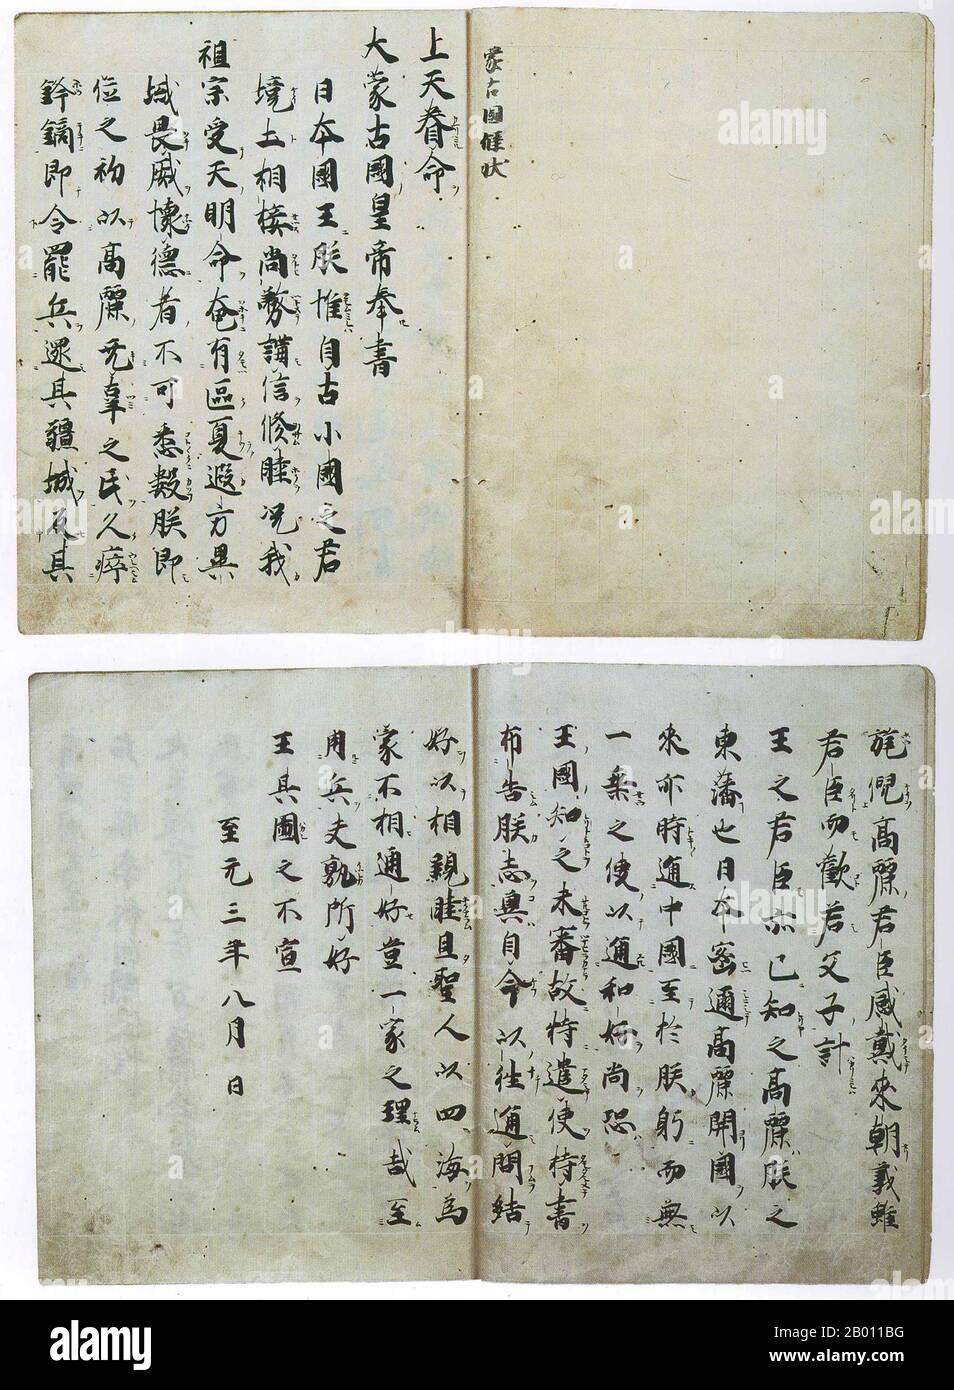 蒙古國牒状
上天眷命
大蒙古國皇帝奉書
日本國王朕惟自古小國之君
境土相接尚務講信修睦况我
祖宗受天明命奄有區夏遐方異
域畏威懷德者不可悉數朕即
位之初以高麗无辜之民久瘁
鋒鏑即令罷兵還其疆域反其
旄倪高麗君臣感戴來朝義雖
君臣而歡若父子計
王之君臣亦已知之高麗朕之
東藩也日本密邇高麗開國以
來亦時通中國至於朕躬而無
一乗之使以通和好尚恐
王國知之未審故特遣使持書
布告朕志冀自今以往通問結
好以相親睦且聖人以四海為
家不相通好豈一家之理哉至
用兵夫孰所好
王其圖之不宣
至元三年八月日
alamy
Image ID: 2B011BG
www.alamy.com